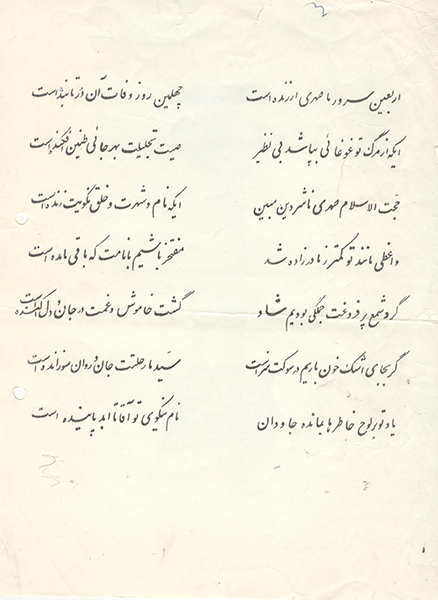 اربعین سرور ما صهری ارزنده است چهلمین روز وفات آن در تابنده است
ایکه از مرگ تو غوغائی بپا شد بی نظیر صیت تجلیلت بهر جائی طنین افکنده است
حجت الاسلام صهری ناشر دین مبین ایکه نام و شهرت و خلق نکویت زنده است
واعظی مانند تو کمتر ز مادر زاده شد مفتخر باشیم با نامت که باقی مانده است
گرد شمع پر فروغت جملگی بودیم شاد گشت خاموش و غمت در جان و دل آکنده است
گر بجای اشک خون باریم در سوکت سزاست سید ما رحلتت جان و روان سوزانده است
یاد تو بر لوح خاطرها بمانده جاودان نام نیکوی تو آقا تا ابد پاینده است